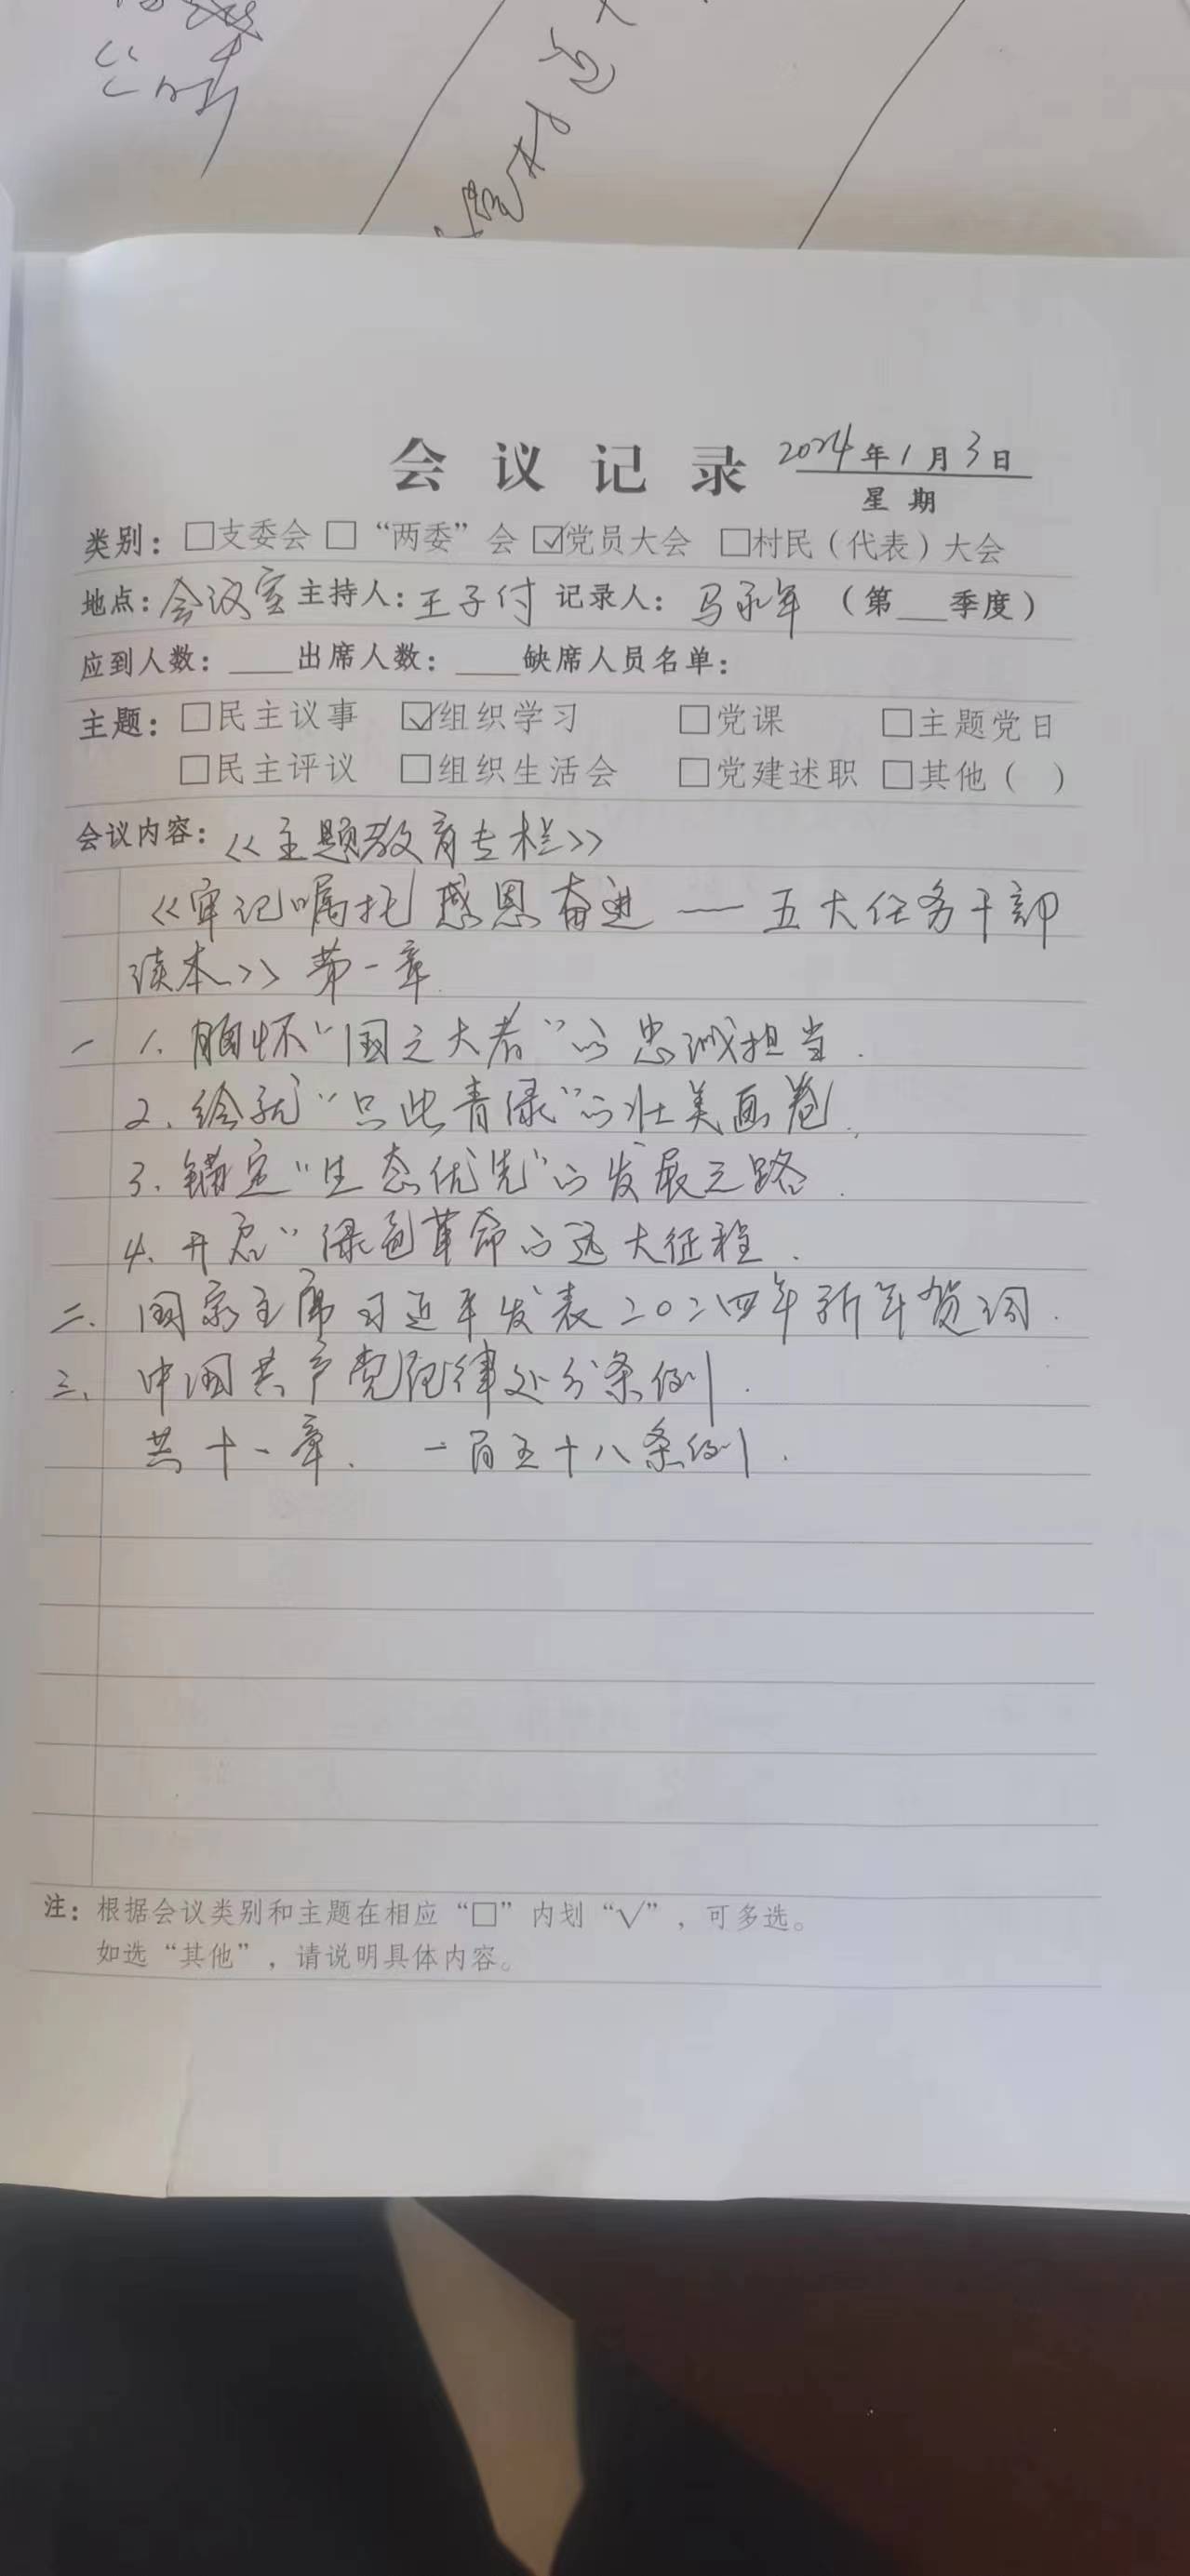 会议记录 2024年1月3日
星期
类别：□支委会 □“两委”会 ☑党员大会 □村民（代表）大会
地点：会议室 主持人：王子付 记录人：马永年 （第__季度）
应到人数：____出席人数：____缺席人员名单：
主题：□民主议事 ☑组织学习 □党课 □主题党日
□民主评议 □组织生活会 □党建述职 □其他（ ）
会议内容：《主题教育专栏》
《牢记嘱托 感恩奋进 — 五大任务干部
读本》 第一章
一 1. 胸怀“国之大者”的忠诚担当.
2. 绘就“只此青绿”的壮美画卷.
3. 锚定“生态优先”的发展之路.
4. 开启“绿色革命的远大征程.
二. 国家主席习近平发表二〇二四年新年贺词.
三. 中国共产党纪律处分条例.
共十一章. 一百五十八条例.
注：根据会议类别和主题在相应“□”内划“√”，可多选。
如选“其他”，请说明具体内容。